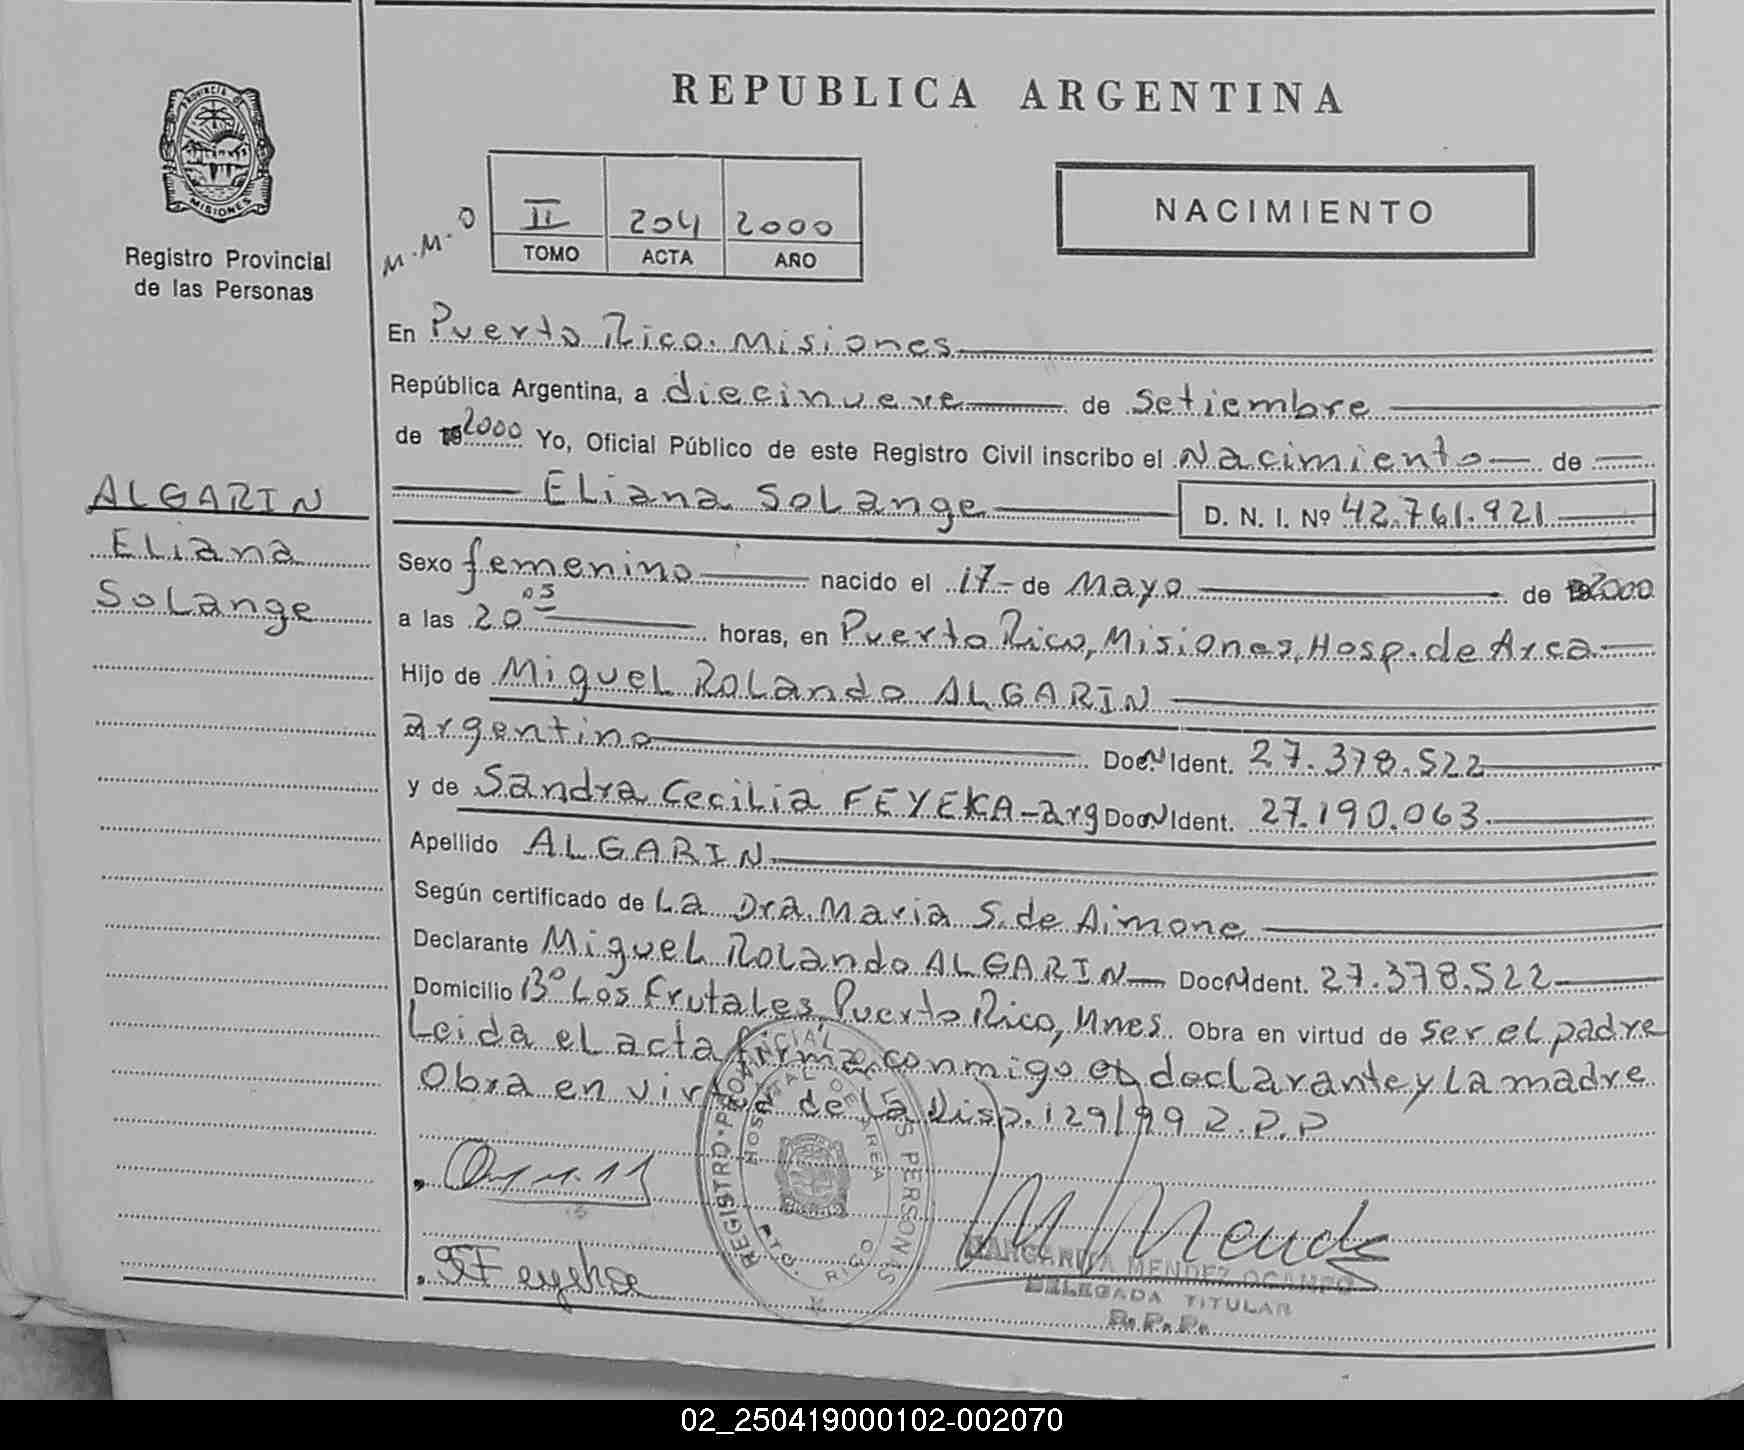 REPUBLICA ARGENTINA
PROVINCIA DE
MISIONES
Registro Provincial
de las Personas
M.M.O
II 204 2000
TOMO ACTA AÑO
NACIMIENTO
En Puerto Rico. Misiones
República Argentina, a diecinueve de setiembre
de 2000 Yo, Oficial Público de este Registro Civil inscribo el Nacimiento de
Eliana Solange D. N. I. Nº 42.761.921
ALGARIN
Eliana
Solange
Sexo femenino nacido el 17 de Mayo de 2000
a las 20 05 horas, en Puerto Rico, Misiones, Hosp. de Area
Hijo de Miguel Rolando ALGARIN
argentino Doc. N Ident. 27.378.522
y de Sandra Cecilia FEYEKA - arg Doc N Ident. 27.190.063
Apellido ALGARIN
Según certificado de La Dra. Maria S. de Aimone
Declarante Miguel Rolando ALGARIN Doc N Ident. 27.378.522
Domicilio Bº Los Frutales, Puerto Rico, Mnes. Obra en virtud de ser el padre
Leida el acta firma conmigo el declarante y La madre
Obra en virtud de la Disp. 129/99 R.P.P
REGISTRO PROVINCIAL DE LAS PERSONAS
HOSPITAL DE AREA
PTO. RICO
SFeyeka
MARGARITA MENDEZ OCAMPO
DELEGADA TITULAR
R.P.P.
02_250419000102-002070